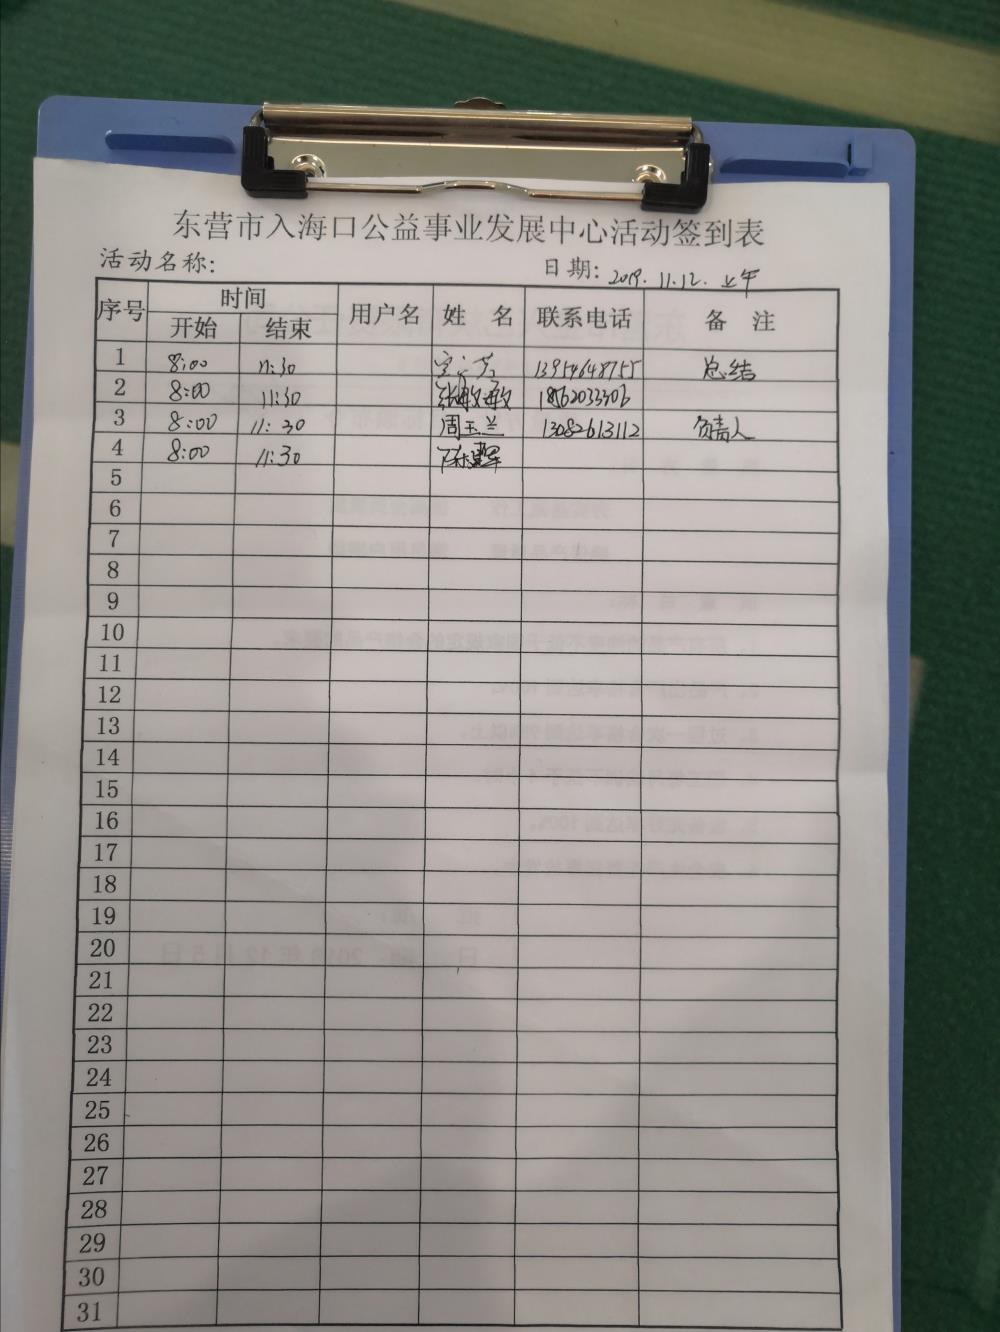 东营市入海口公益事业发展中心活动签到表
活动名称: 日期: 2019.11.12. 上午
序号 时间 用户名 姓 名 联系电话 备 注
开始 结束
1 8:00 11:30 13954648755 总结
2 8:00 11:30 张敏敏 18562033306
3 8:00 11:30 周玉兰 13082613112 负责人
4 8:00 11:30
5
6
7
8
9
10
11
12
13
14
15
16
17
18
19
20
21
22
23
24
25
26
27
28
29
30
31